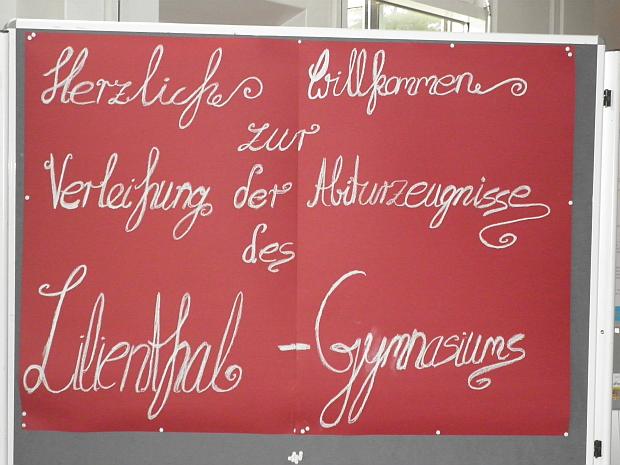 Herzlich Willkommen
zur
Verleihung der Abiturzeugnisse
des
Lilienthal - Gymnasiums